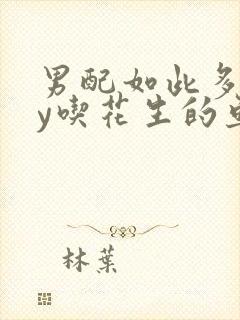 男配如此多
y喫花生的
林葉